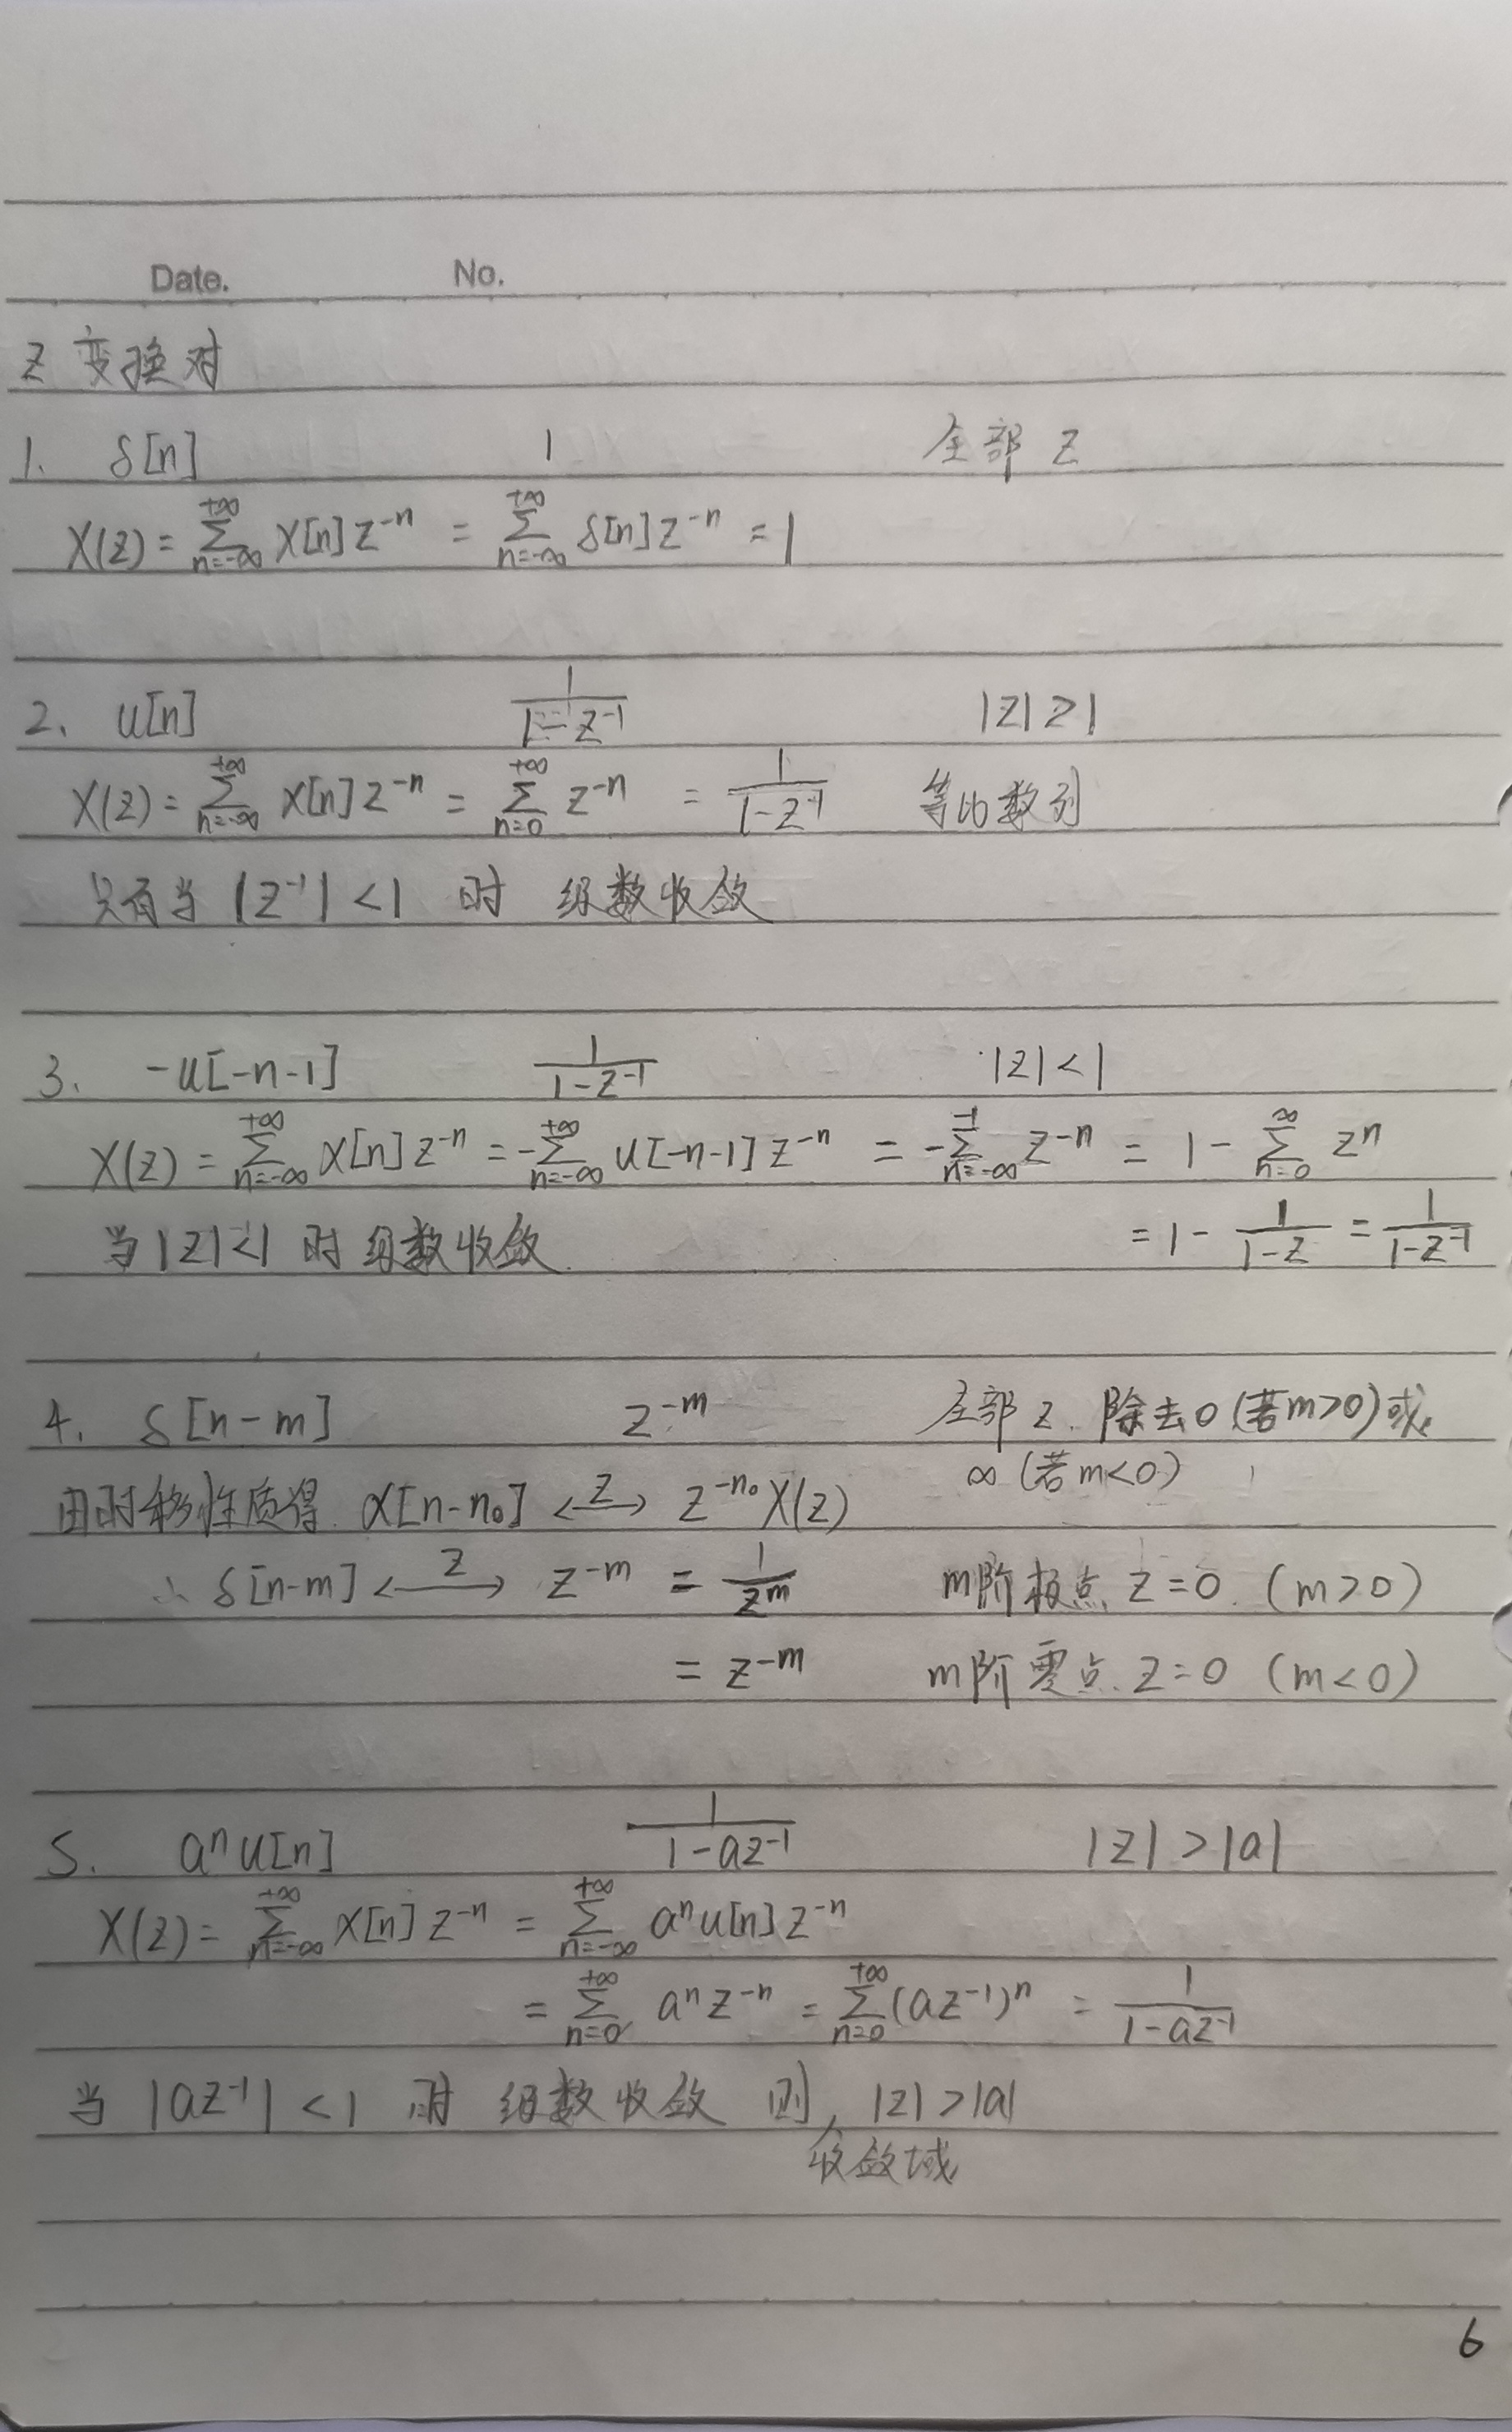 Date. No.
Z 变换对
1. δ[n] 1 全部 Z
X(z) = \sum_{n=-∞}^{+∞} x[n] z^{-n} = \sum_{n=-∞}^{+∞} δ[n] z^{-n} = 1
2. u[n] \frac{1}{1-z^{-1}} |z|>1
X(z) = \sum_{n=-∞}^{+∞} x[n] z^{-n} = \sum_{n=0}^{+∞} z^{-n} = \frac{1}{1-z^{-1}} 等比数列
只有当 |z^{-1}| < 1 时 级数收敛
3. -u[-n-1] \frac{1}{1-z^{-1}} |z|<1
X(z) = \sum_{n=-∞}^{+∞} x[n] z^{-n} = -\sum_{n=-∞}^{+∞} u[-n-1] z^{-n} = -\sum_{n=-∞}^{-1} z^{-n} = 1 - \sum_{n=0}^{∞} z^{n}
当 |z|<1 时 级数收敛. = 1 - \frac{1}{1-z} = \frac{1}{1-z^{-1}}
4. δ[n-m] z^{-m} 全部 z. 除去0 (若m>0) 或
∞ (若m<0)
由时移性质得. x[n-n_0] \xleftrightarrow{Z} z^{-n_0} X(z)
∴ δ[n-m] \xleftrightarrow{Z} z^{-m} = \frac{1}{z^m} m阶极点 z=0. (m>0)
= z^{-m} m阶零点. z=0 (m<0)
5. a^n u[n] \frac{1}{1-az^{-1}} |z|>|a|
X(z) = \sum_{n=-∞}^{+∞} x[n] z^{-n} = \sum_{n=-∞}^{+∞} a^n u[n] z^{-n}
= \sum_{n=0}^{+∞} a^n z^{-n} = \sum_{n=0}^{+∞} (az^{-1})^n = \frac{1}{1-az^{-1}}
当 |az^{-1}| < 1 时 级数收敛 则, |z|>|a|
收敛域
6